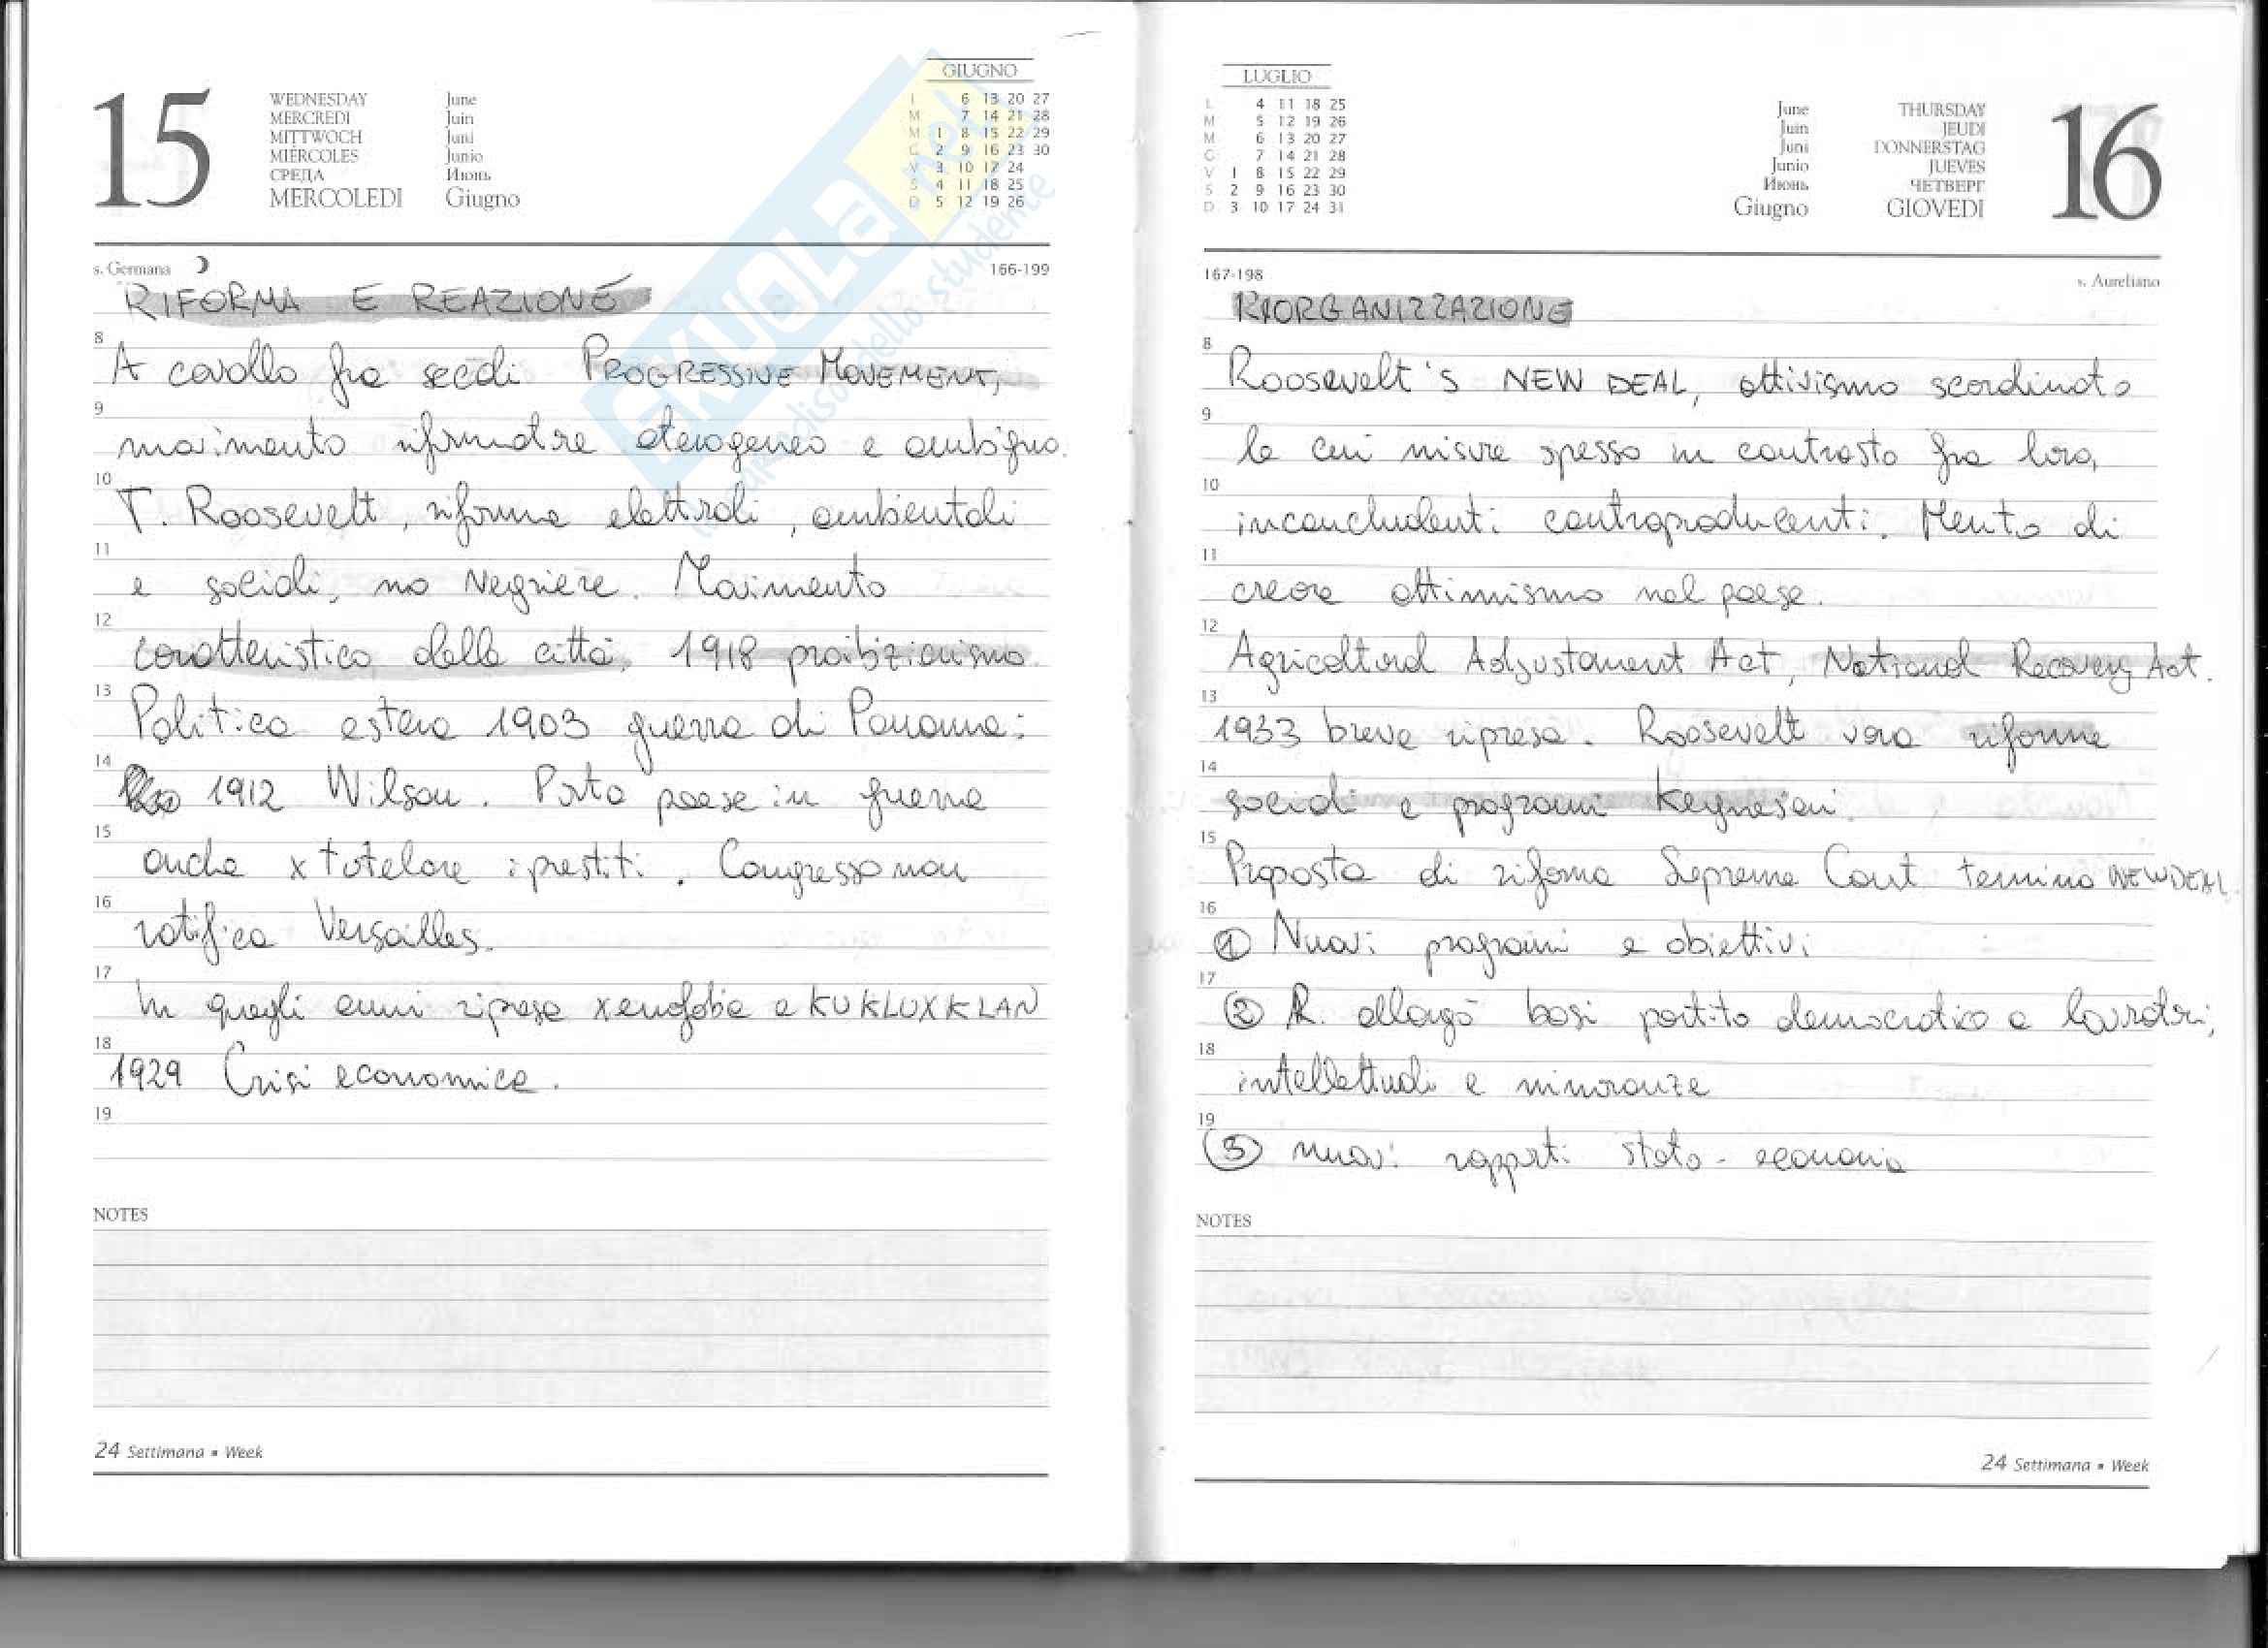 15
WEDNESDAY June
MERCREDI Juin
MITTWOCH Juni
MIÉRCOLES Junio
СРЕДА Июнь
MERCOLEDI Giugno
GIUGNO
L 6 13 20 27
M 7 14 21 28
M 1 8 15 22 29
G 2 9 16 23 30
V 3 10 17 24
S 4 11 18 25
D 5 12 19 26
SKUOLA.net
il paradiso dello studente
s. Germana 166-199
RIFORMA E REAZIONE
8
A cavallo fra secoli PROGRESSIVE MOVEMENT,
9
movimento riformatore eterogeneo e ambiguo.
10
T. Roosevelt, riforme elettorali, ambientali
11
e sociali, no Negriere. Movimento
12
caratteristico delle città, 1918 proibizionismo.
13
Politica estera 1903 guerra di Panama;
14
1912 Wilson. Porta paese in guerra
15
anche x tutelare i prestiti. Congresso non
16
ratifica Versailles.
17
In quegli anni ripresa xenofobia e KUKLUXKLAN
18
1929 Crisi economica.
19
NOTES
24 Settimana ▪ Week
LUGLIO
L 4 11 18 25
M 5 12 19 26
M 6 13 20 27
G 7 14 21 28
V 1 8 15 22 29
S 2 9 16 23 30
D 3 10 17 24 31
June THURSDAY
Juin JEUDI
Juni DONNERSTAG
Junio JUEVES
Июнь ЧЕТВЕРГ
Giugno GIOVEDI
16
167-198 s. Aureliano
RIORGANIZZAZIONE
8
Roosevelt's NEW DEAL, attivismo scordinato
9
le cui misure spesso in contrasto fra loro,
10
inconcludenti controproducenti. Merito di
11
creare ottimismo nel paese.
12
Agricoltural Adjustament Act, National Recovery Act.
13
1933 breve ripresa. Roosevelt vara riforme
14
sociali e programmi keynesiani.
15
Proposta di riforma Supreme Court termina NEWDEAL
16
① Nuovi programmi e obiettivi
17
② R. allargò basi partito democratico a lavoratori,
18
intellettuali e minoranze
19
③ nuovi rapporti stato - economia
NOTES
24 Settimana ▪ Week